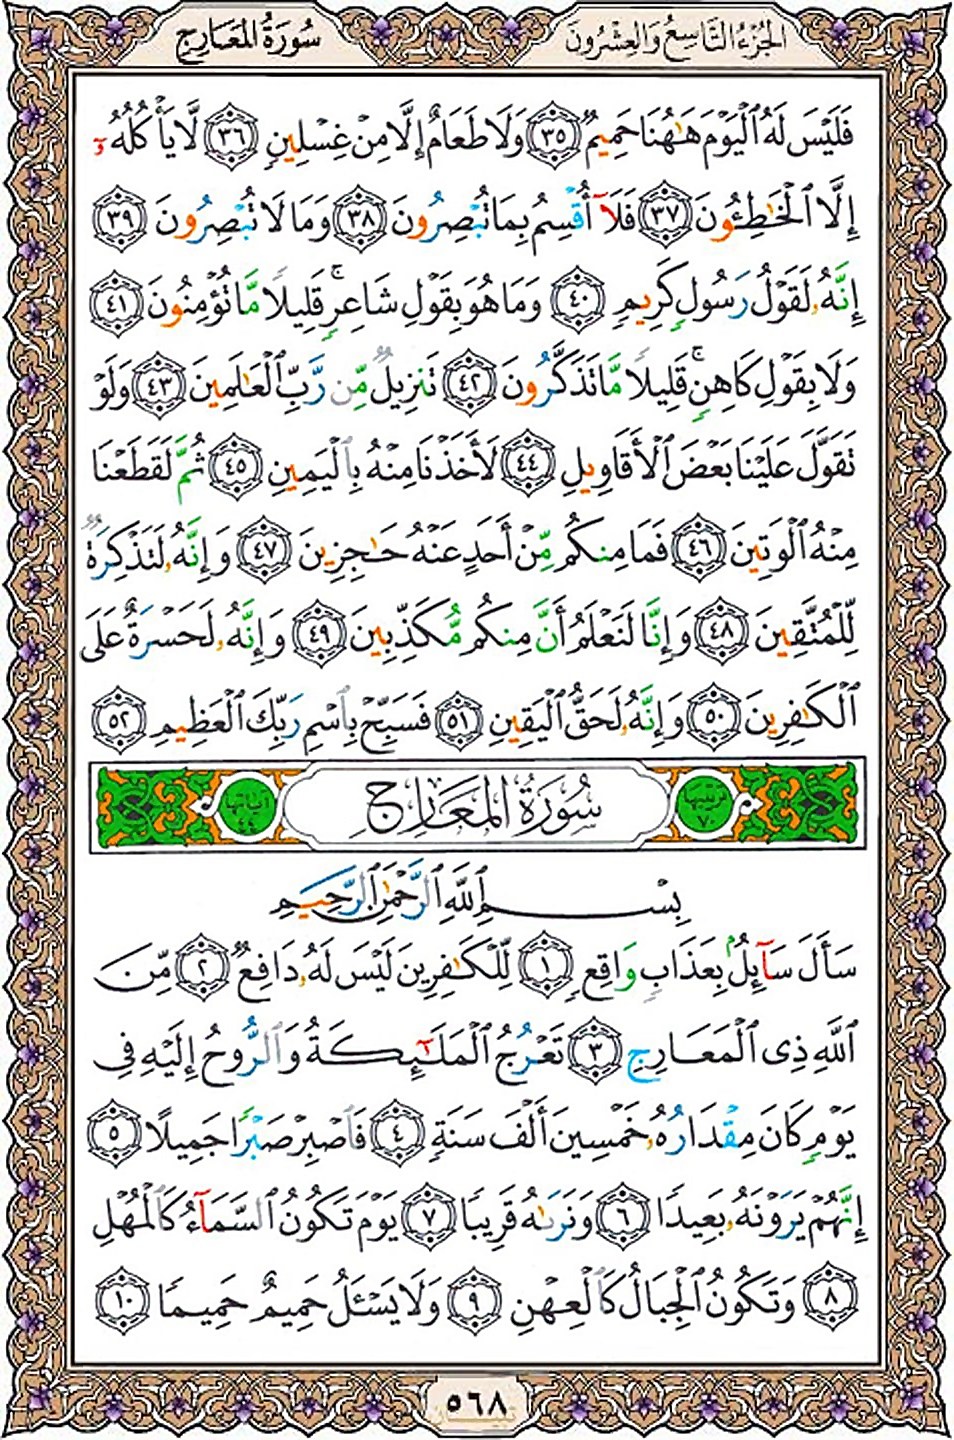 الجزء التاسع والعشرون
سورة المعارج
فَلَيْسَ لَهُ ٱلْيَوْمَ هَٰهُنَا حَمِيمٌ ٣٥ وَلَا طَعَامٌ إِلَّا مِنْ غِسْلِينٍ ٣٦ لَّا يَأْكُلُهُۥٓ
إِلَّا ٱلْخَٰطِـُٔونَ ٣٧ فَلَآ أُقْسِمُ بِمَا تُبْصِرُونَ ٣٨ وَمَا لَا تُبْصِرُونَ ٣٩
إِنَّهُۥ لَقَوْلُ رَسُولٍ كَرِيمٍ ٤٠ وَمَا هُوَ بِقَوْلِ شَاعِرٍ ۚ قَلِيلًا مَّا تُؤْمِنُونَ ٤١
وَلَا بِقَوْلِ كَاهِنٍ ۚ قَلِيلًا مَّا تَذَكَّرُونَ ٤٢ تَنزِيلٌ مِّن رَّبِّ ٱلْعَٰلَمِينَ ٤٣ وَلَوْ
تَقَوَّلَ عَلَيْنَا بَعْضَ ٱلْأَقَاوِيلِ ٤٤ لَأَخَذْنَا مِنْهُ بِٱلْيَمِينِ ٤٥ ثُمَّ لَقَطَعْنَا
مِنْهُ ٱلْوَتِينَ ٤٦ فَمَا مِنكُم مِّنْ أَحَدٍ عَنْهُ حَٰجِزِينَ ٤٧ وَإِنَّهُۥ لَتَذْكِرَةٌ
لِّلْمُتَّقِينَ ٤٨ وَإِنَّا لَنَعْلَمُ أَنَّ مِنكُم مُّكَذِّبِينَ ٤٩ وَإِنَّهُۥ لَحَسْرَةٌ عَلَى
ٱلْكَٰفِرِينَ ٥٠ وَإِنَّهُۥ لَحَقُّ ٱلْيَقِينِ ٥١ فَسَبِّحْ بِٱسْمِ رَبِّكَ ٱلْعَظِيمِ ٥٢
ترتيبها ٧٠ سُورَةُ المَعَارِجِ آياتها ٤٤
بِسْمِ ٱللَّهِ ٱلرَّحْمَٰنِ ٱلرَّحِيمِ
سَأَلَ سَآئِلٌۢ بِعَذَابٍ وَاقِعٍ ١ لِّلْكَٰفِرِينَ لَيْسَ لَهُۥ دَافِعٌ ٢ مِّنَ
ٱللَّهِ ذِى ٱلْمَعَارِجِ ٣ تَعْرُجُ ٱلْمَلَٰٓئِكَةُ وَٱلرُّوحُ إِلَيْهِ فِى
يَوْمٍ كَانَ مِقْدَارُهُۥ خَمْسِينَ أَلْفَ سَنَةٍ ٤ فَٱصْبِرْ صَبْرًا جَمِيلًا ٥
إِنَّهُمْ يَرَوْنَهُۥ بَعِيدًا ٦ وَنَرَىٰهُ قَرِيبًا ٧ يَوْمَ تَكُونُ ٱلسَّمَآءُ كَٱلْمُهْلِ
٨ وَتَكُونُ ٱلْجِبَالُ كَٱلْعِهْنِ ٩ وَلَا يَسْـَٔلُ حَمِيمٌ حَمِيمًا ١٠
٥٦٨